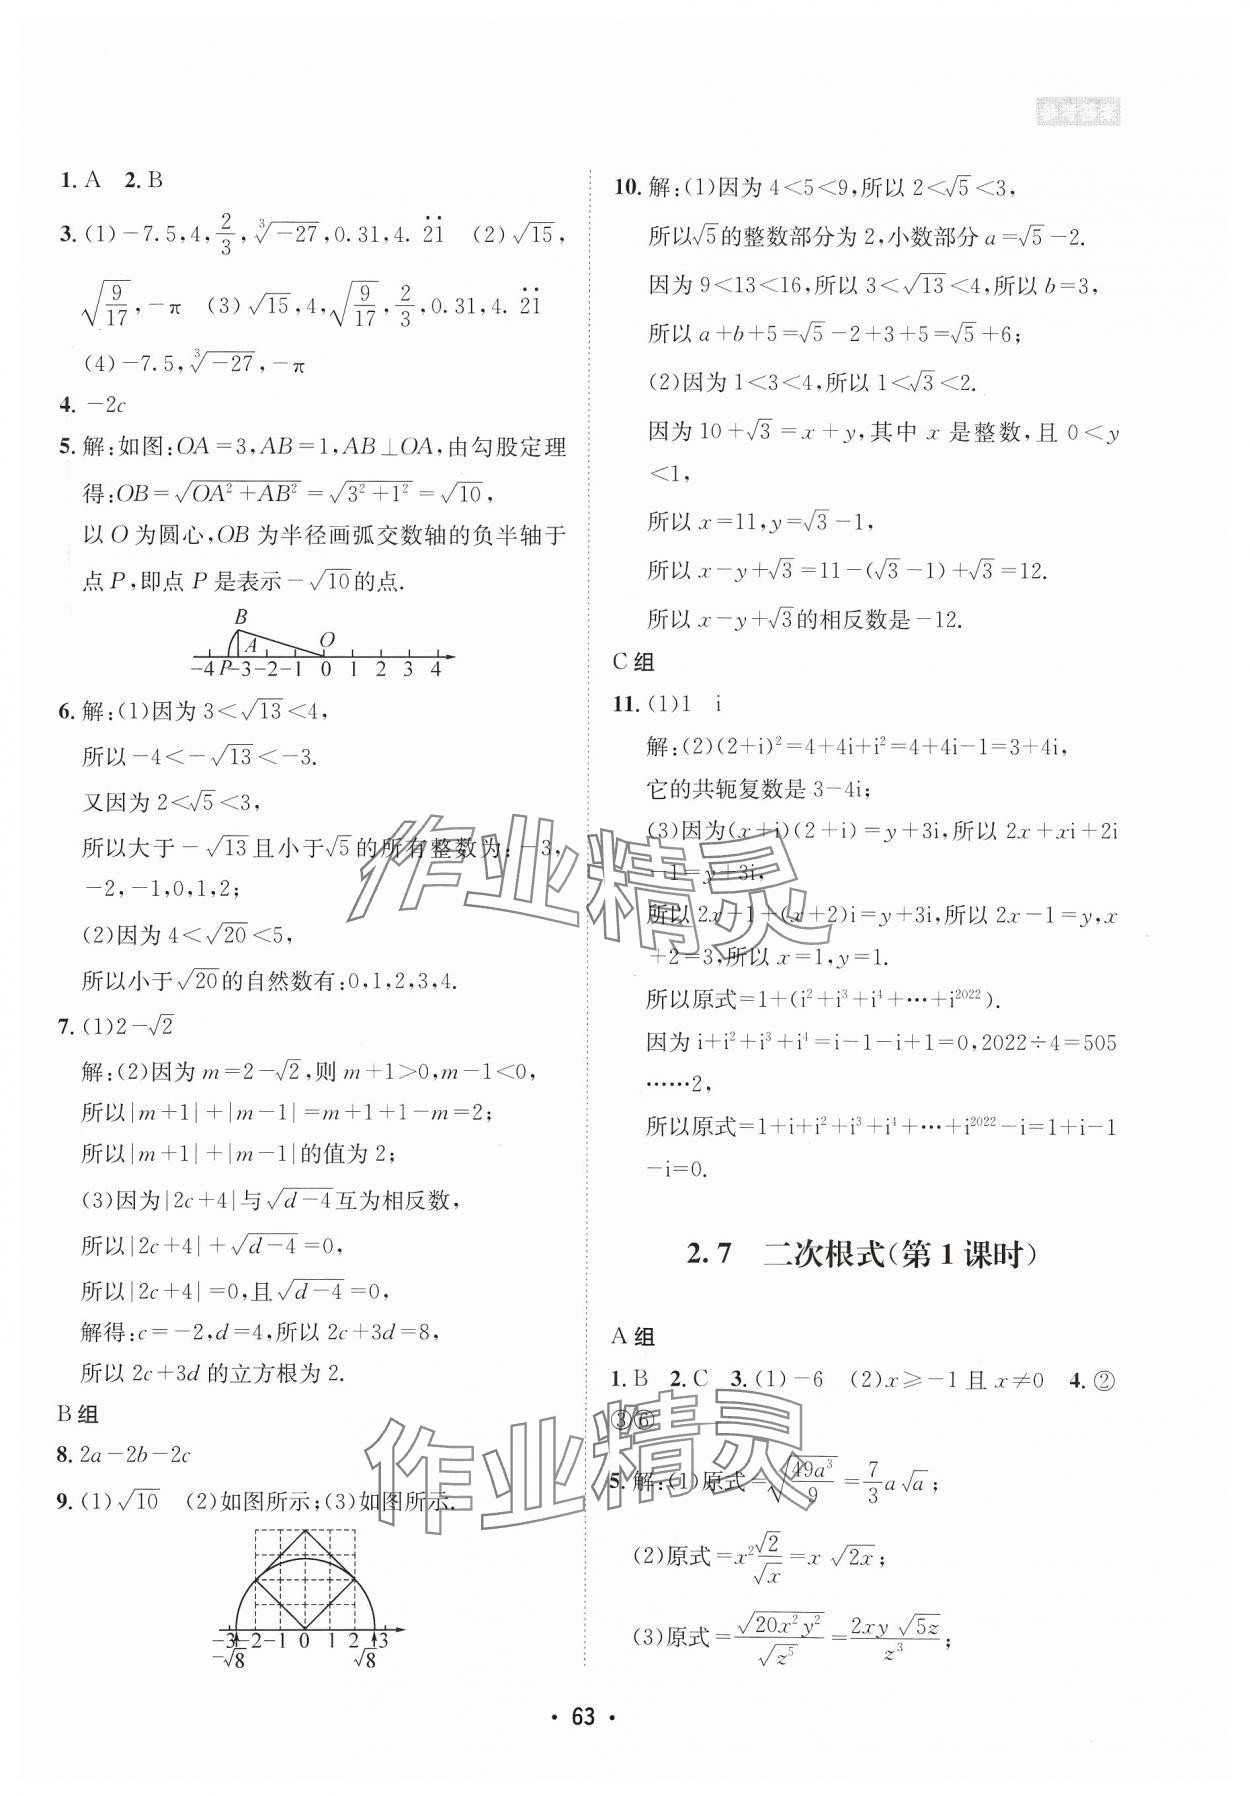 参考答案
1. A 2. B
3. (1)-7.5,4,2/3,∛-27,0.31,4.2̇1̇ (2)√15,
√(9/17),-π (3)√15,4,√(9/17),2/3,0.31,4.2̇1̇
(4)-7.5,∛-27,-π
4. -2c
5. 解:如图:OA=3,AB=1,AB⊥OA,由勾股定理
得:OB=√(OA²+AB²)=√(3²+1²)=√10,
以 O 为圆心,OB 为半径画弧交数轴的负半轴于
点 P,即点 P 是表示-√10的点.
B
A O
-4 P -3 -2 -1 0 1 2 3 4
6. 解:(1)因为 3<√13<4,
所以-4<-√13<-3.
又因为 2<√5<3,
所以大于-√13且小于√5的所有整数为:-3,
-2,-1,0,1,2;
(2)因为 4<√20<5,
所以小于√20的自然数有:0,1,2,3,4.
7. (1)2-√2
解:(2)因为 m=2-√2,则 m+1>0,m-1<0,
所以|m+1|+|m-1|=m+1+1-m=2;
所以|m+1|+|m-1|的值为 2;
(3)因为|2c+4|与√(d-4)互为相反数,
所以|2c+4|+√(d-4)=0,
所以|2c+4|=0,且√(d-4)=0,
解得:c=-2,d=4,所以 2c+3d=8,
所以 2c+3d 的立方根为 2.
B 组
8. 2a-2b-2c
9. (1)√10 (2)如图所示;(3)如图所示.
-3 -2 -1 0 1 2 3
-√8 √8
10. 解:(1)因为 4<5<9,所以 2<√5<3,
所以√5的整数部分为 2,小数部分 a=√5-2.
因为 9<13<16,所以 3<√13<4,所以 b=3,
所以 a+b+5=√5-2+3+5=√5+6;
(2)因为 1<3<4,所以 1<√3<2.
因为 10+√3=x+y,其中 x 是整数,且 0<y
<1,
所以 x=11,y=√3-1,
所以 x-y+√3=11-(√3-1)+√3=12.
所以 x-y+√3的相反数是-12.
C 组
11. (1)1 i
解:(2)(2+i)²=4+4i+i²=4+4i-1=3+4i,
它的共轭复数是 3-4i;
(3)因为(x+i)(2+i)=y+3i,所以 2x+xi+2i
-1=y+3i,
所以 2x-1+(x+2)i=y+3i,所以 2x-1=y,x
+2=3,所以 x=1,y=1.
所以原式=1+(i²+i³+i⁴+…+i²⁰²²).
因为 i+i²+i³+i⁴=i-1-i+1=0,2022÷4=505
……2,
所以原式=1+i+i²+i³+i⁴+…+i²⁰²²-i=1+i-1
-i=0.
2.7 二次根式(第 1 课时)
A 组
1. B 2. C 3. (1)-6 (2)x≥-1 且 x≠0 4. ②
③⑥
5. 解:(1)原式=√(49a³/9)=7/3 a√a;
(2)原式=x²√2/√x=x√2x;
(3)原式=√(20x²y²)/√z⁵=2xy√5z/z³;
作业精灵
作业精灵
· 63 ·